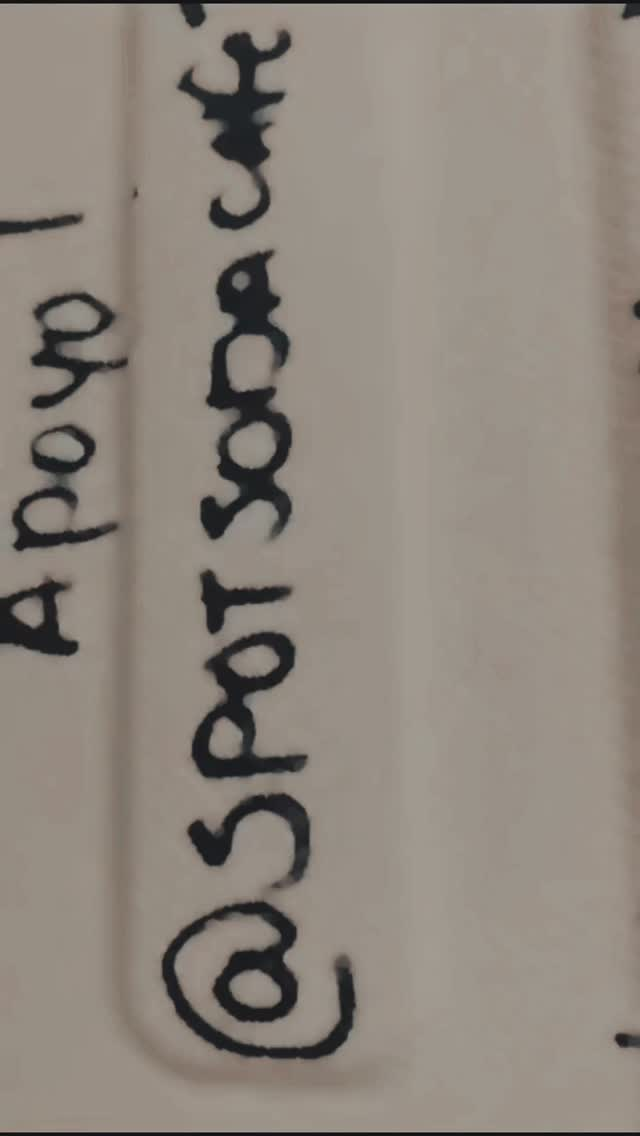 Apoyo
@SPOTSODACAFÉ